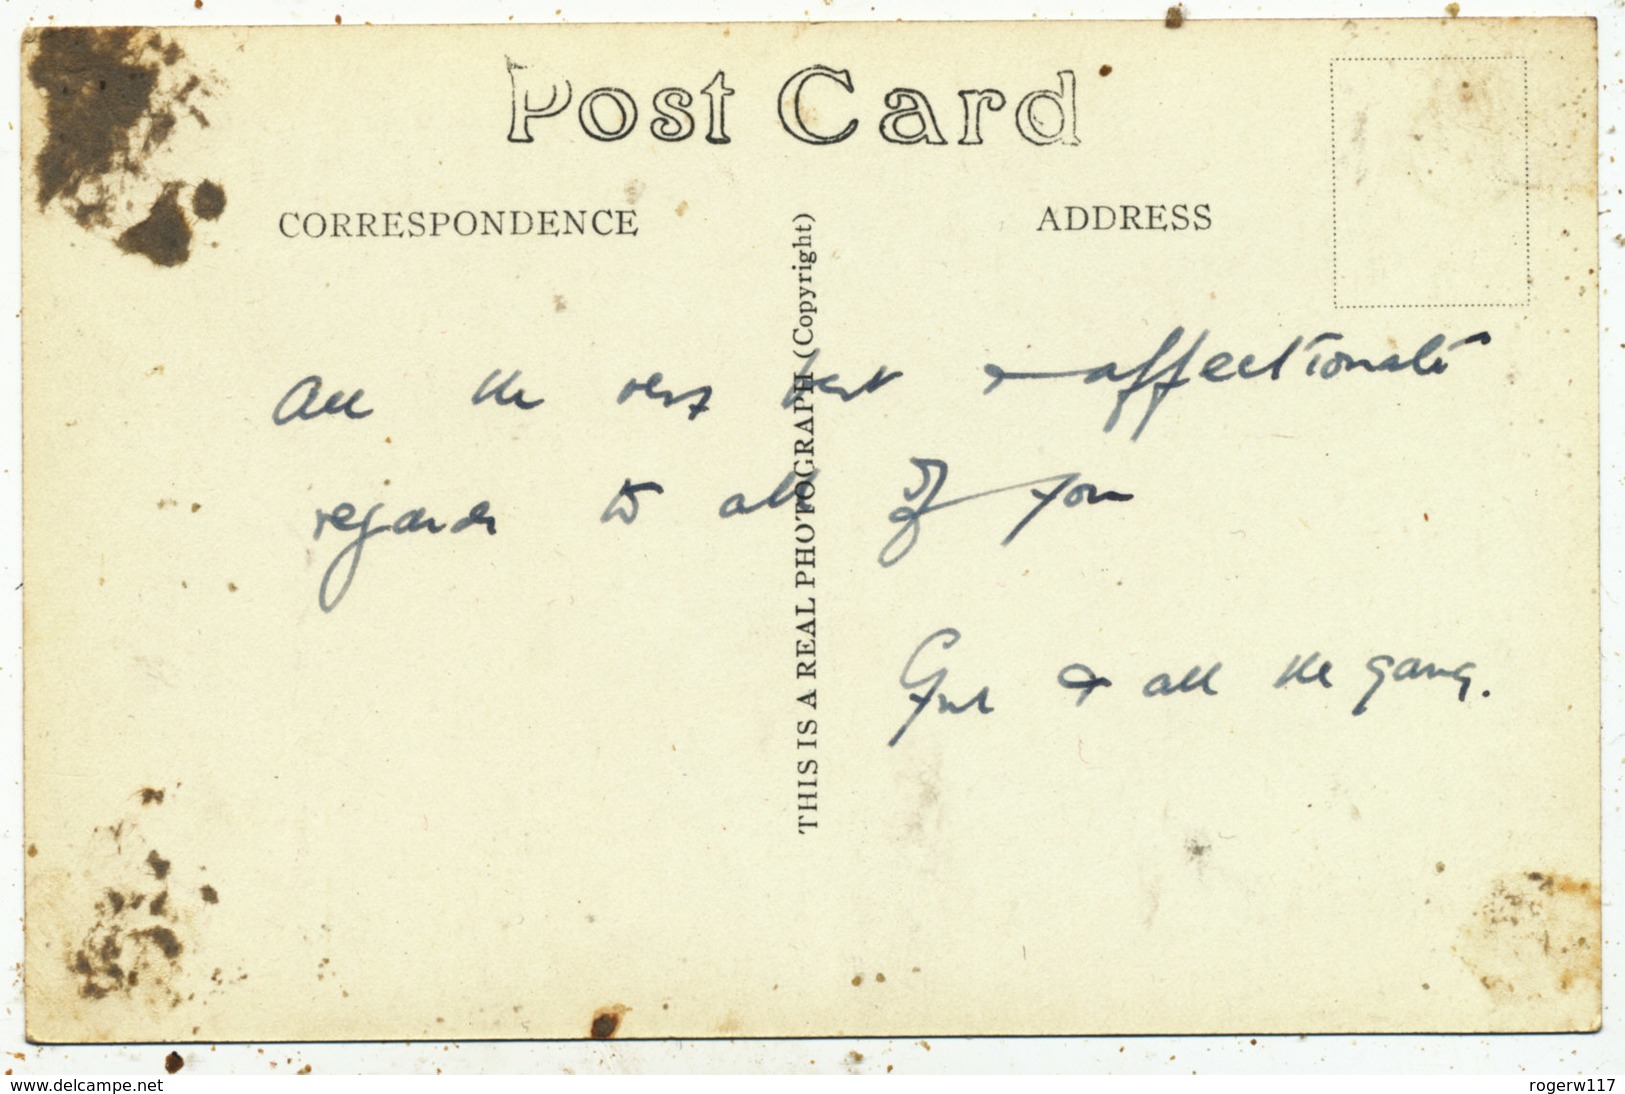 Post Card
CORRESPONDENCE
ADDRESS
THIS IS A REAL PHOTOGRAPH (Copyright)
All the very best & affectionate
regards to all of you
& all the gang.
www.delcampe.net
rogerw117